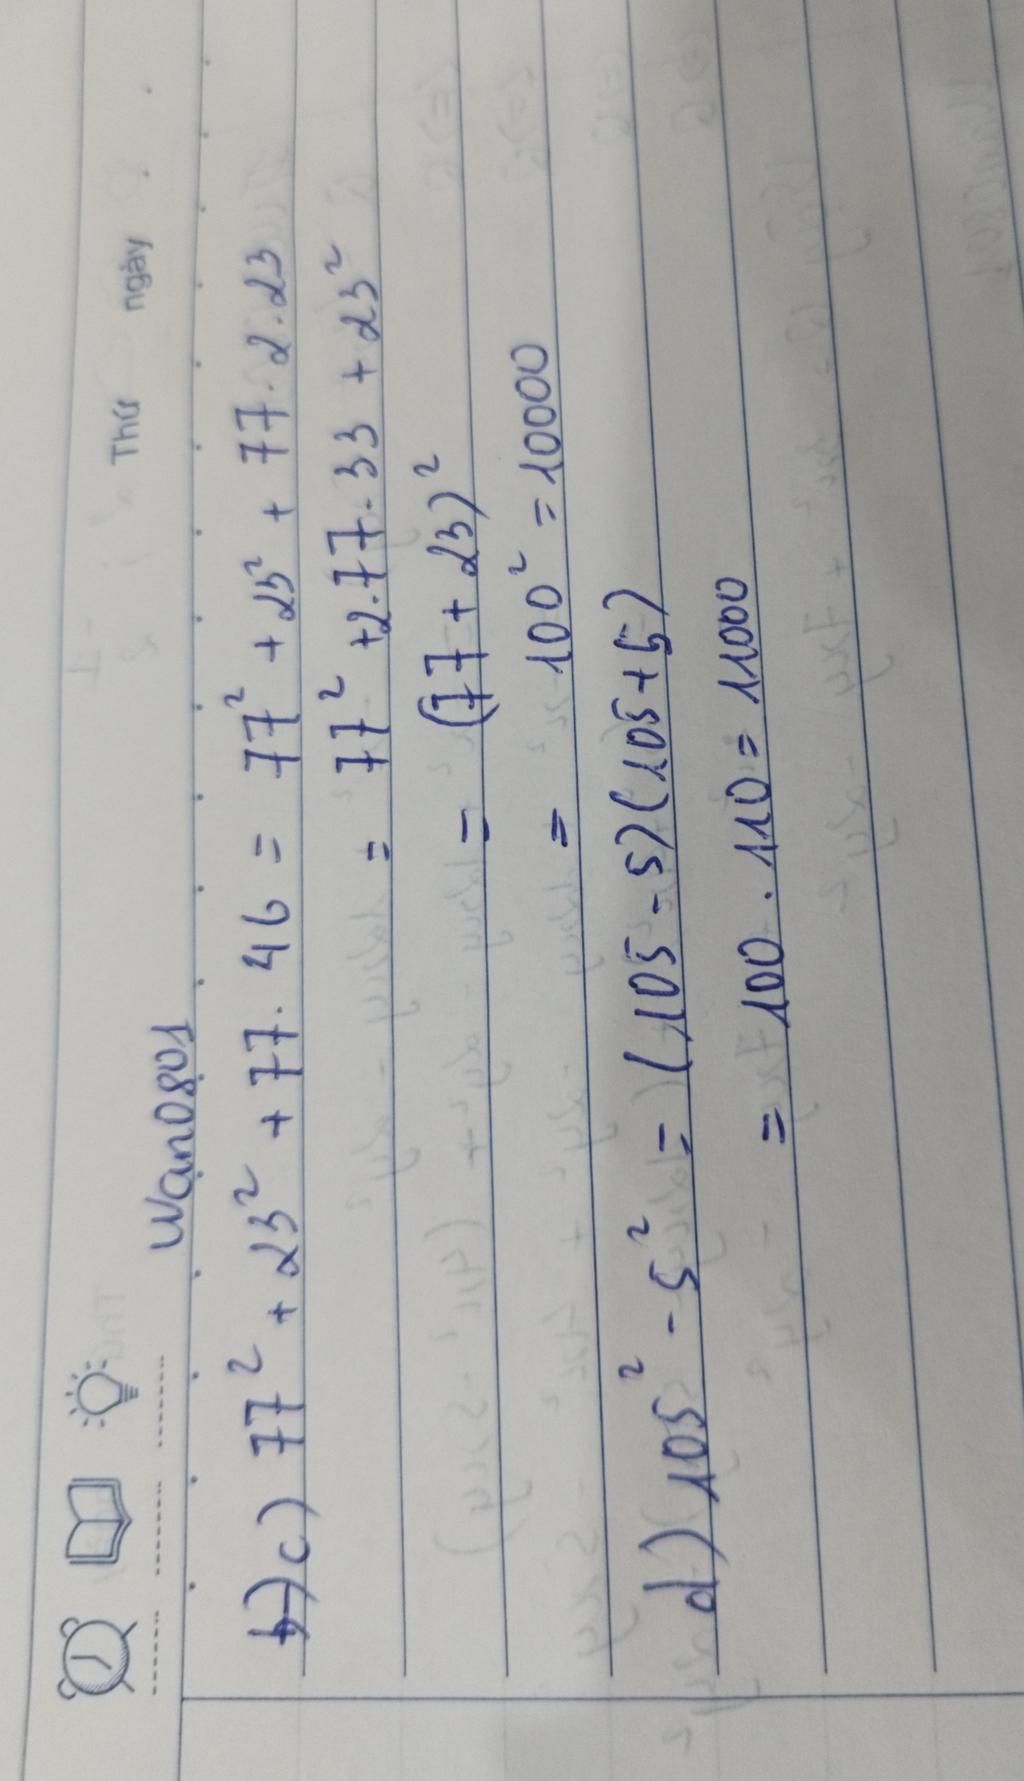 Thứ ngày
Wan0801
b) c) 77² + 23² + 77. 46 = 77² + 23² + 77. 2. 23
= 77² + 2.77. 33 + 23²
= (77 + 23)²
= 100² = 10000
d) 105² - 5² = (105 - 5)(105 + 5)
= 100 . 110 = 11000